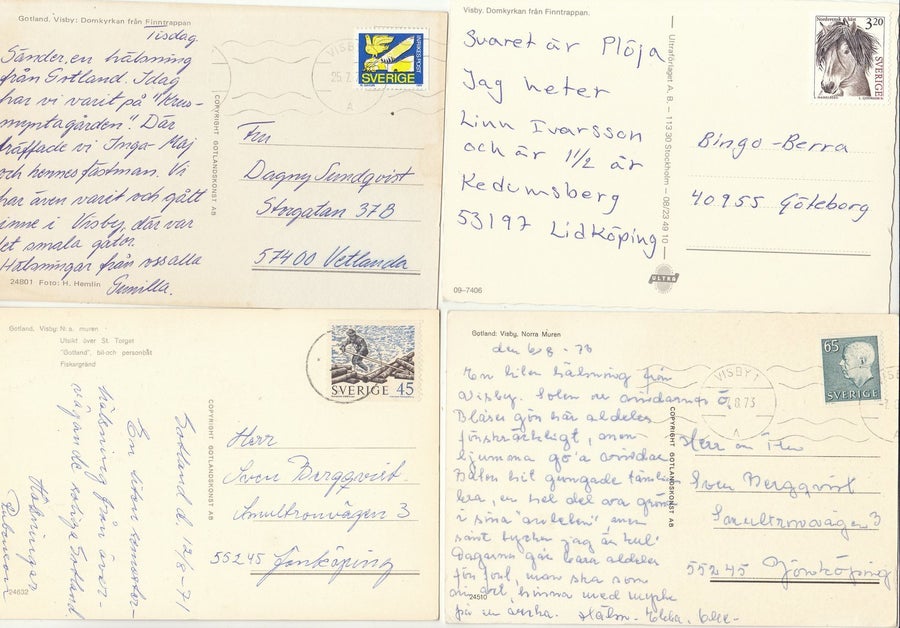 Gotland, Visby: Domkyrkan från Finntrappan
Tisdag.
Sänder en hälsning
från Gotland. Idag
har vi varit på "Krus-
myntagården". Där
träffade vi Inga-Maj
och hennes fästman. Vi
har även varit och gått
inne i Visby, där var
det smala gator.
Hälsningar från oss alla
Gunilla.
24801 Foto: H. Hemlin
COPYRIGHT GOTLANDSKONST AB
SVERIGE
VISBY
25.7
A
Fru
Dagny Sundqvist
Storgatan 37B
57400 Vetlanda
Visby. Domkyrkan från Finntrappan.
Svaret är Plöja
Jag heter
Linn Ivarsson
och är 1 1/2 år
Kedumsberg
53197 Lidköping
09-7406
Ultraförlaget A. B. — 113 30 Stockholm — 08/23 49 10
ULTRA
3.20
SVERIGE
Bingo-Berra
40955 Göteborg
Gotland, Visby: N:a. muren
Utsikt över St. Torget
"Gotland", bil-och personbåt
Fiskargränd
Gotland d. 12/8-71
En liten semester-
hälsning från över-
vägande soliga Gotland
Hälsningar
24632
COPYRIGHT GOTLANDSKONST AB
SVERIGE 45
Herr
Sven Bergqvist
Smultronvägen 3
55245 Jönköping
Gotland: Visby, Norra Muren
den 6/8 - 73
En liten hälsning från
Visby. Solen
Blåser gör här alldeles
förskräckligt, men
ljumma go'a vindar
Båten hit gungade
bra, en hel del var gröna
i sina "ansikten" men
sånt tycker jag är kul!
Dagarna går bara alldeles
för fort, man ska som
hinna med mycke
på en vecka. Hälsn.
24510
COPYRIGHT GOTLANDSKONST AB
VISBY 1
8.73
A
65
SVERIGE
Herr o Fru
Sven Bergqvist
Smultronvägen 3
55245 Jönköping